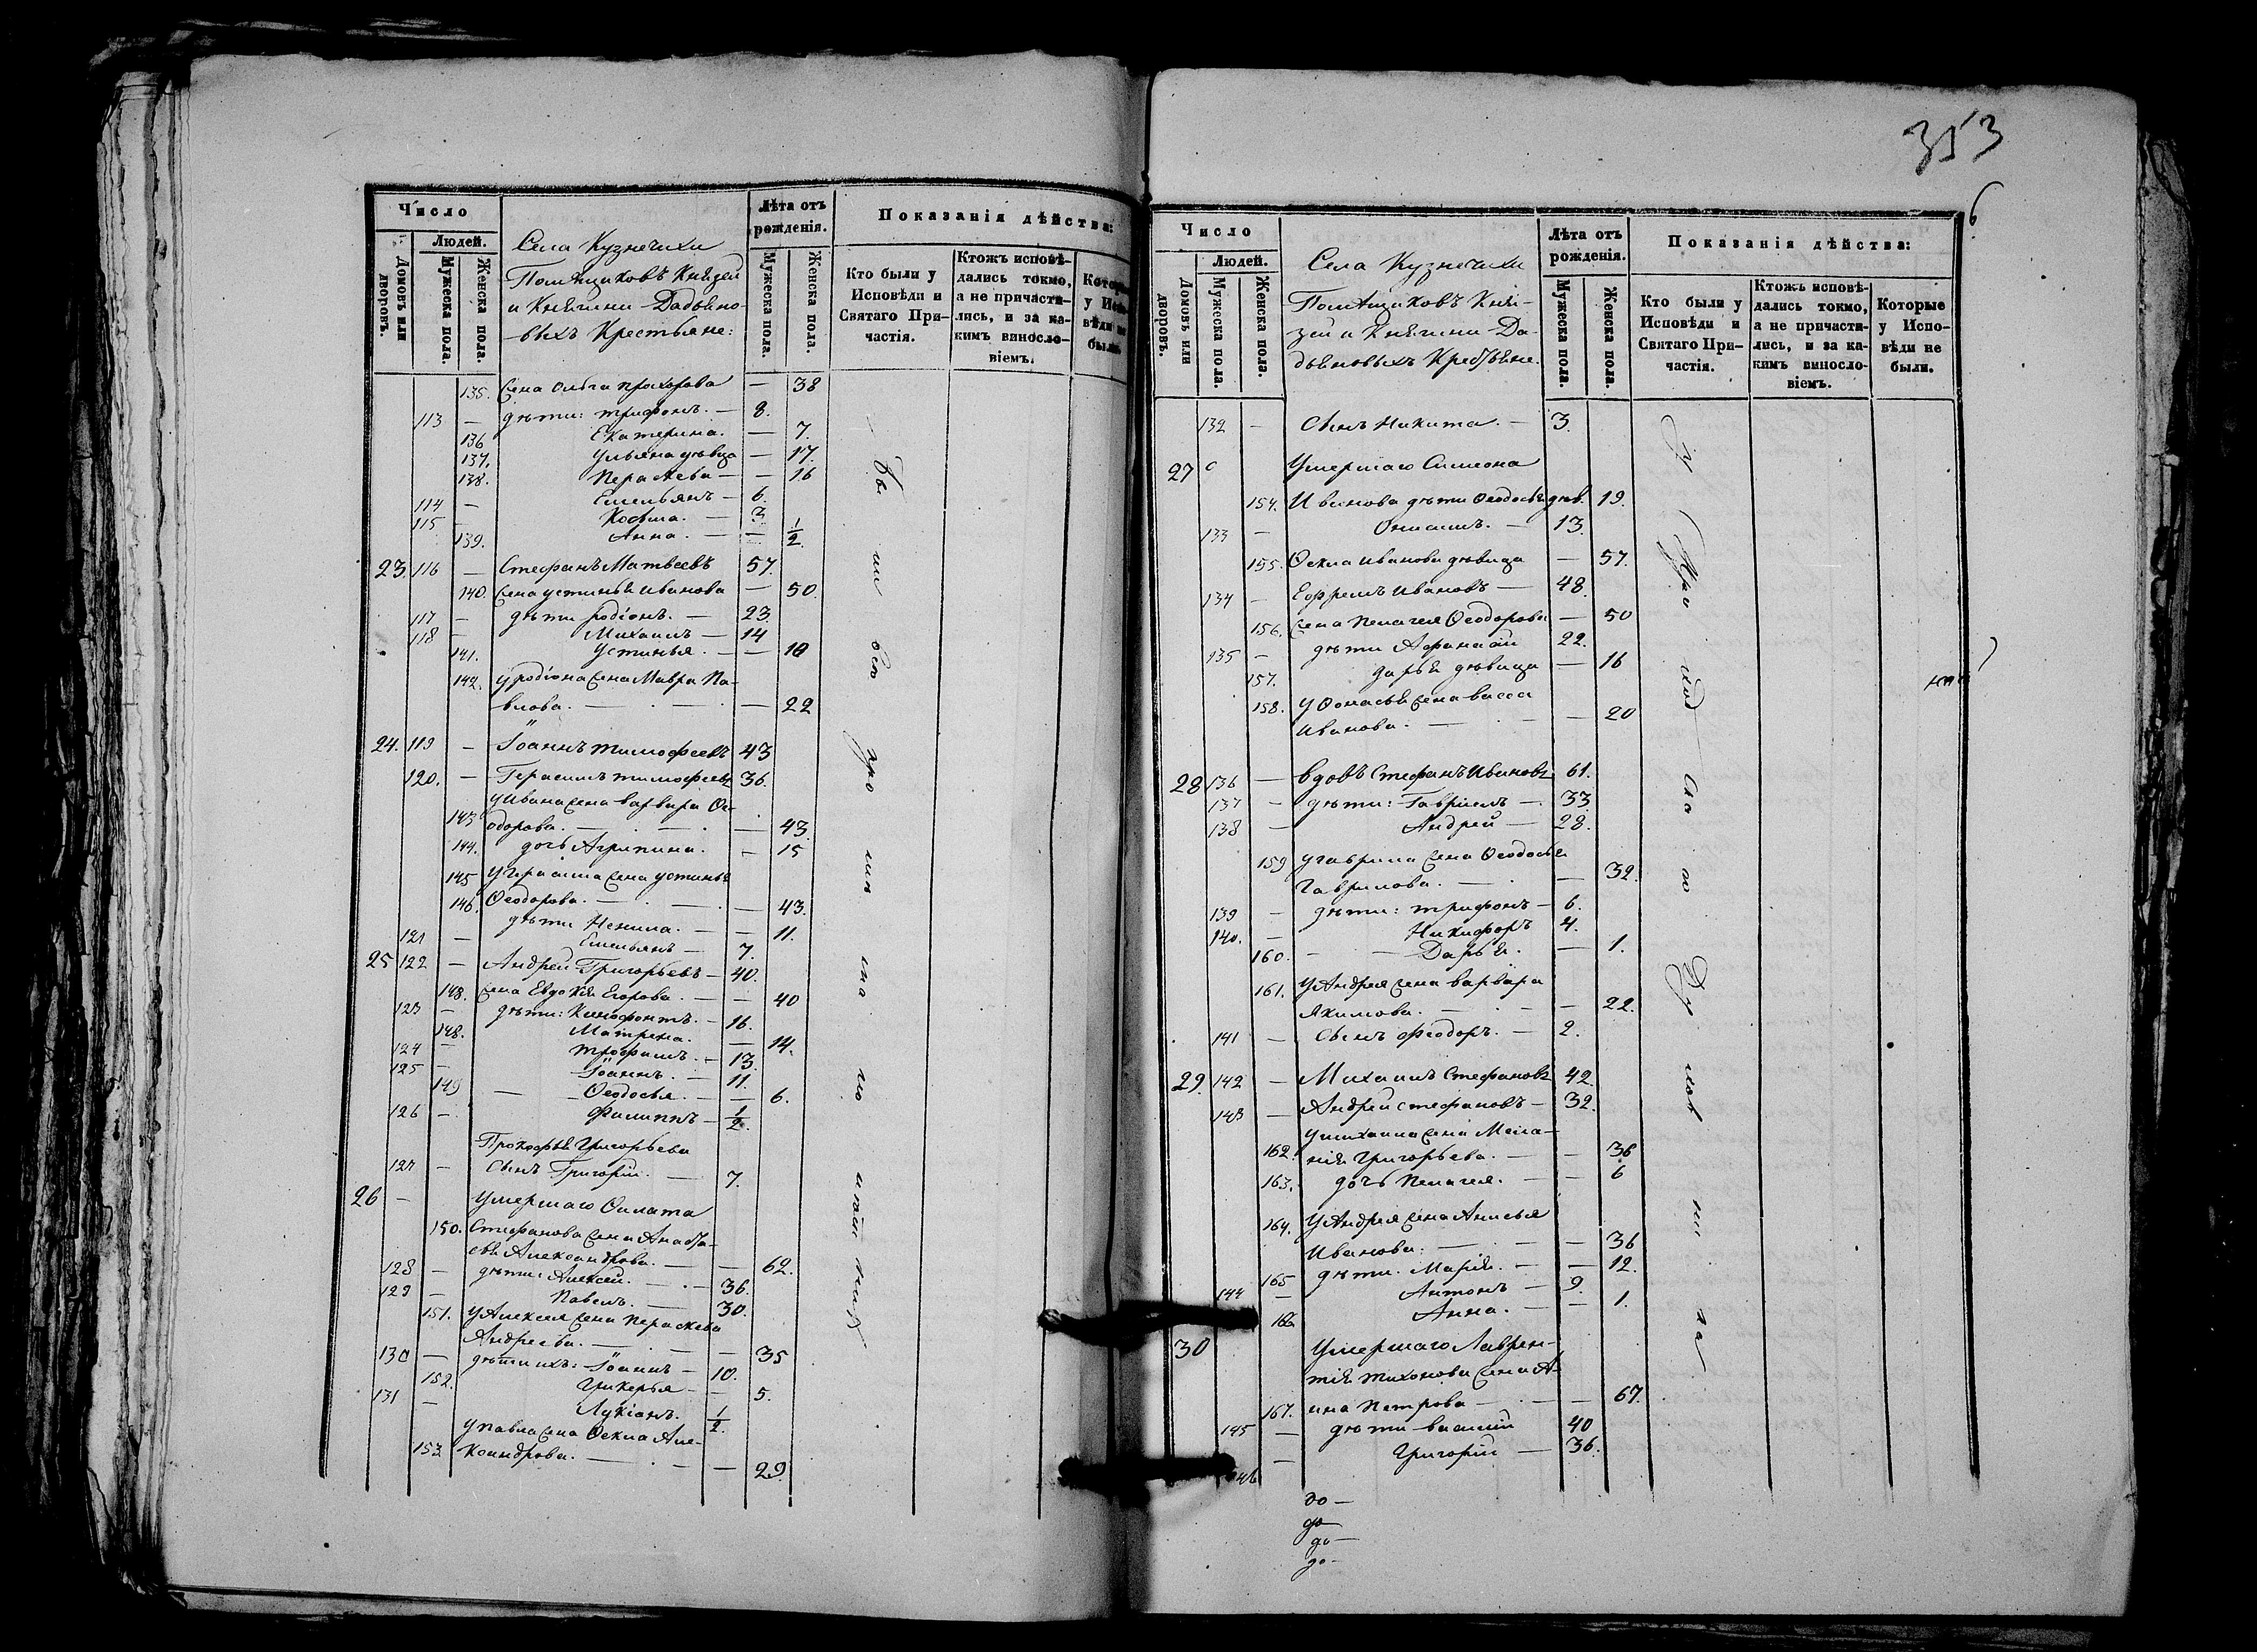 353
6
Число
Людей.
Домовъ или дворовъ.
Мужеска пола.
Женска пола.
Села Кузнечихи
Помѣщиковъ Князей
и Княгини Дадьяно-
выхъ Крестьяне:
Лѣта отъ рожденія.
Мужеска пола.
Женска пола.
Показанія дѣйства:
Кто были у Исповѣди и Святаго При-частія.
Ктожъ исповѣ-дались токмо, а не причасти-лись, и за ка-кимъ винословіемъ.
135. Жена Ольга Прохорова — 38
113 — дѣти: Трифонъ. — 8.
136 Екатерина. — 7.
137. Ульяна дѣвица — 17.
138. Параскева — — 16
114 — Емельянъ — 6.
115 — Косьма. — 3
139. Анна. — — 1/2.
23. 116 — Стефанъ Матвеевъ 57
140. Жена Устинья Иванова — 50.
117 — дѣти Родіонъ. — 23.
118 — Михаилъ — 14
141. Устинья. — — 10
142. У Родіона жена Мавра Па-
влова. — — 22
24. 119 — Іоаннъ Тимофеевъ 43
120. — Герасимъ Тимофеевъ 36.
У Ивана жена Варвара Ѳе-
143 одорова. — — 43.
144. дочь Агрипина. — 15
145 У Герасима жена Устинья
146. Ѳеодорова. — — 43.
дѣти Ненила. — — 11.
121 — Емельянъ — 7.
25 122 — Андрей Григорьевъ — 40.
148. Жена Евдокія Егорова. — — 40
123 — дѣти: Ксенофонтъ. — 16.
148. Матрена. — 14.
124 — Трофимъ. — 13
125 — Іоаннъ. — 11.
149 — Ѳеодосья. — — 6.
126 — Филиппъ — 1/2.
Прокофья Григорьева
127 — Сынъ Григорій. — 7.
26 — Умершаго Филата
150. Стефанова жена Анаста-
сья Александрова. — — 62.
128 — дѣти: Алексей. — 36.
129 — Павелъ. — 30.
151. У Алексея жена Параскева
Андреева. — — 35
130 — дѣти ихъ: Іоаннъ — 10.
152. Гликерья — — 5.
131 — Лукіанъ. 1/2.
У Павла жена Ѳекла Але-
153 ксандрова. — — 29.
Число
Людей.
Домовъ или дворовъ.
Мужеска пола.
Женска пола.
Села Кузнечихи
Помѣщиковъ Кня-
зей и Княгини Да-
дьяновыхъ Крестьяне.
Лѣта отъ рожденія.
Мужеска пола.
Женска пола.
Показанія дѣйства:
Кто были у Исповѣди и Святаго При-частія.
Ктожъ исповѣ-дались токмо, а не причасти-лись, и за ка-кимъ винословіемъ.
Которые у Испо-вѣди не были.
132 — Сынъ Никита. — 3.
27 Умершаго Симеона
154. Иванова дѣти Ѳеодосья дѣв. 19.
133 — Онисимъ. — 13.
155. Ѳекла Иванова дѣвица — 57.
134 — Ефремъ Ивановъ — 48.
156. Жена Пелагея Ѳеодорова — 50
135 — дѣти Афанасій 22.
157. Дарья дѣвица — 16
158. У Афонасья жена Васса
Иванова. — — 20
28 136 — Вдовъ Стефанъ Ивановъ 61.
137 — дѣти: Гавріилъ — 33.
138 — Андрей — 28.
159 У Гаврила жена Ѳеодосья
Гаврилова. — — 32.
139 — дѣти: Трифонъ — 6.
140. — Никифоръ 4.
160. — — Дарья. — 1.
161. У Андрея жена Варвара
Якимова. — — 22.
141 — Сынъ Феодоръ. — 2.
29. 142 — Михаилъ Стефановъ 42.
143 — Андрей Стефановъ — 32.
У Михаила жена Мела-
162. нія Григорьева. — — 36
163. дочь Пелагея. — — 6
164. У Андрея жена Анисья
Иванова: — — 36
165 дѣти. Марія. — — 12.
144 — Антонъ — 9.
166 Анна. — — 1.
30 Умершаго Лаврен-
тія Тихонова жена А-
167. нна Петрова — — 67.
145 — дѣти Василій 40
146 — Григорій — 36.
до —
до
до —
до —